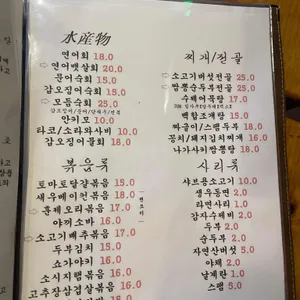 水産物
연어회 18.0
연어뱃살회 20.0
문어숙회 15.0
갑오징어숙회 15.0
모듬숙회 25.0
안키모 10.0
타코/소라와사비 10.0
갑오징어물회 18.0
볶음류
토마토달걀볶음 15.0
새우베이컨볶음 18.0
훈제오리볶음 17.0
야끼소바 16.0
소고기배추볶음 17.0
두부김치 15.0
쇼가야키 16.0
소시지떡볶음 16.0
고추장삼겹살볶음 16.0
찌개/전골
소고기버섯전골 25.0
짬뽕순두부전골 25.0
수제어묵탕 17.0
백합조개탕 15.0
짜글이/스팸두부 18.0
꽁치/돼지김치찌개 16.0
나가사키짬뽕탕 18.0
사리류
샤브용소고기 10.0
생우동면 2.0
라면사리 1.0
감자수제비 2.0
두부 2.0
순두부 2.0
자연산버섯 5.0
야채 2.0
날계란 1.0
스팸 5.0